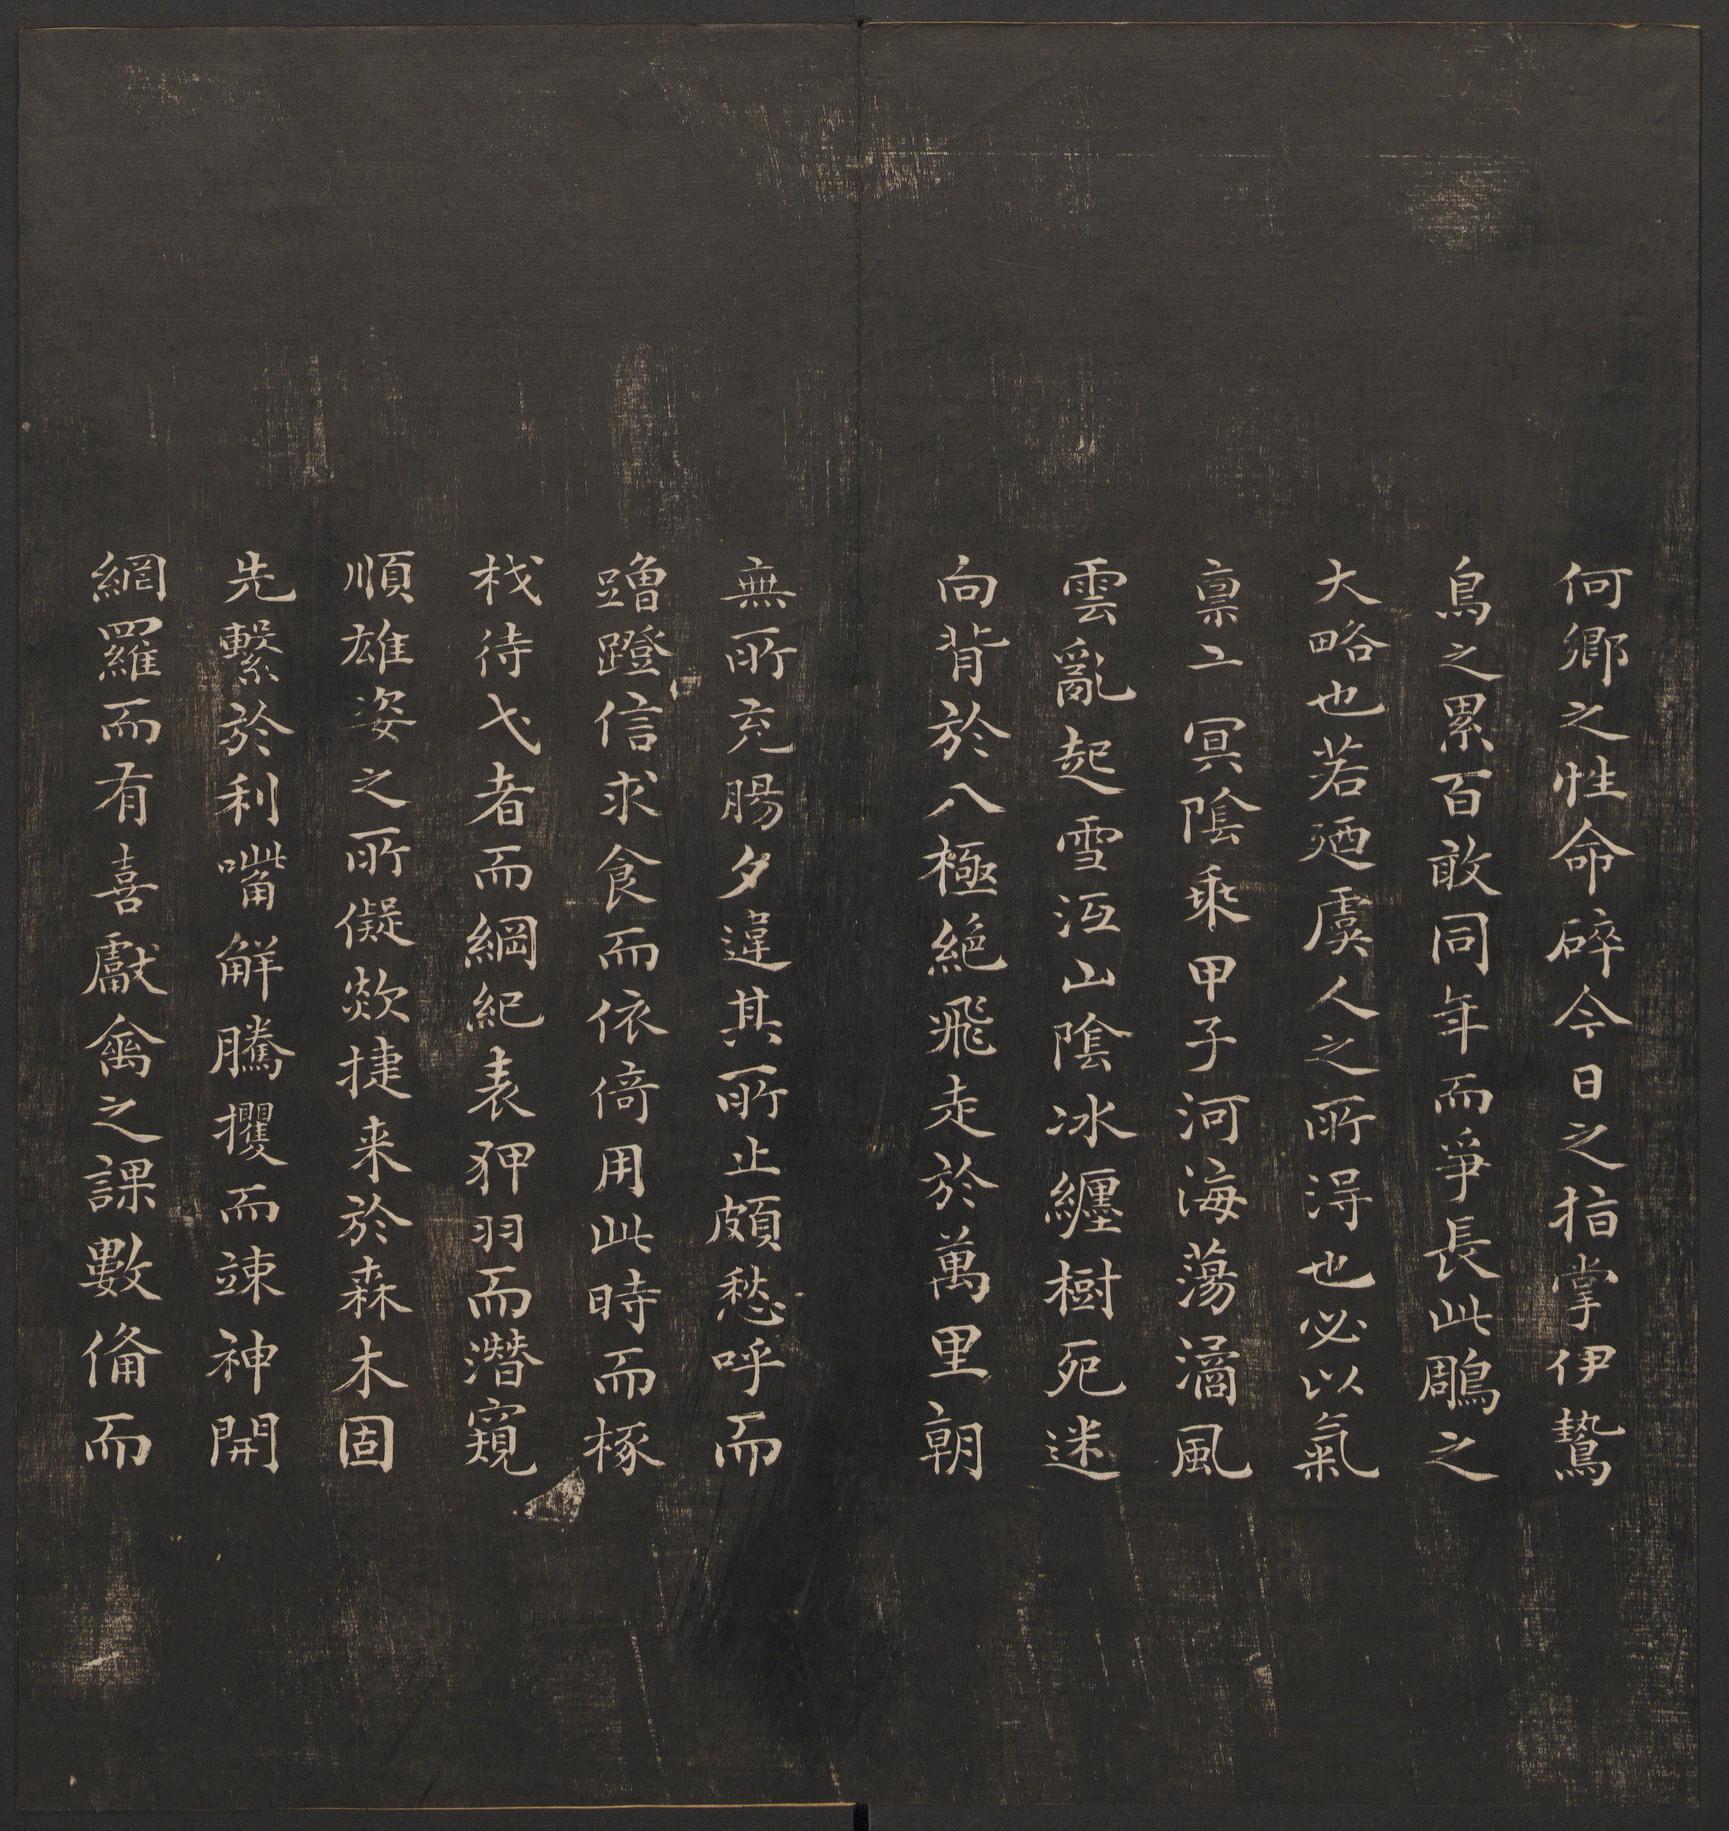 何鄉之性命碎今日之指掌伊鷙
鳥之累百敢同年而爭長此鵰之
大略也若廼虞人之所得也必以氣
禀亠冥陰乘甲子河海蕩潏風
雲亂起雪沍山陰冰纏樹死迷
向背於八極絕飛走於萬里朝
無所充腸夕違其所止頗愁呼而
蹭蹬信求食而依倚用此時而椓
杙待弋者而綱紀表狎羽而潛窺
順雄姿之所儗欻捷来於森木固
先繫於利嘴觧騰攫而竦神開
網羅而有喜獻禽之課數俻而